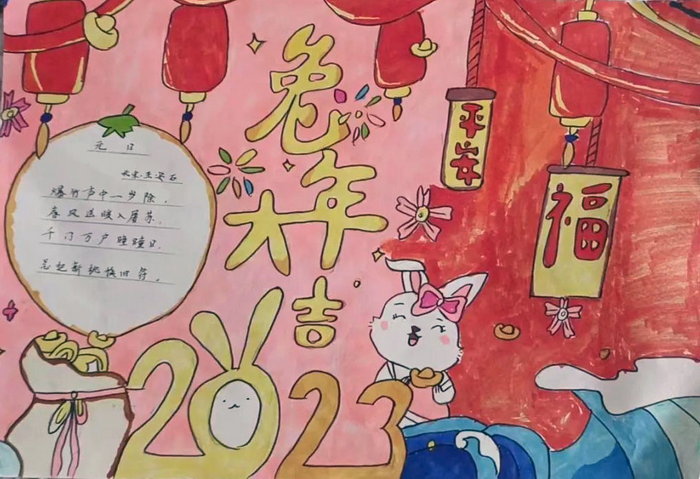 元日
北宋·王安石
爆竹声中一岁除,
春风送暖入屠苏.
千门万户瞳瞳日,
总把新桃换旧符.
兔年大吉
2023
平安
福